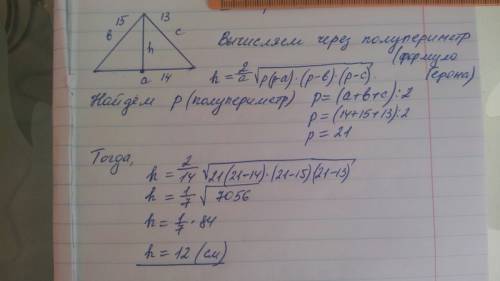 15 13
в h c
a 14
Вычисляем через полупериметр
(формула
Герона)
h = 2/a √p(p-a)·(p-в)·(p-c)
Найдём p (полупериметр) p=(a+в+c):2
p=(14+15+13):2
p = 21
Тогда,
h = 2/14 √21(21-14)·(21-15)(21-13)
h = 1/7 √7056
h = 1/7 · 84
h = 12 (см)